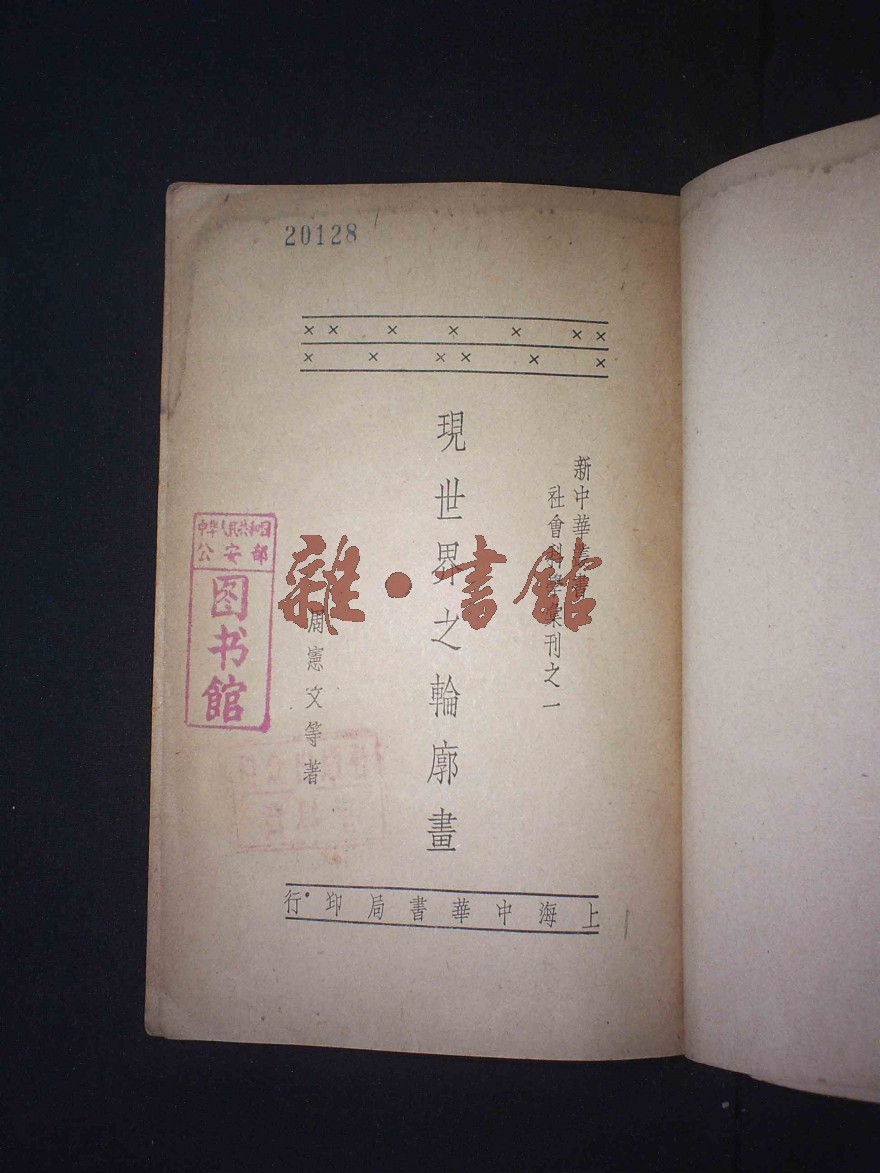 20128
新中華叢書
社會科學彙刊之一
現世界之輪廓畫
周憲文等著
上海中華書局印行
中华人民共和国
公安部
图书館
雜·書館